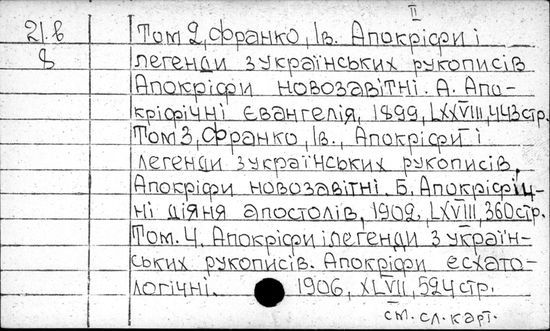 II
21.6 Том 2, Франко, Ів. Апокріфи і
8 легенди з українських рукописів
Апокріфи новозавітні. А. Апо-
кріфічні євангелія, 1899, LXXVIII, 443 стр.
Том 3, Франко, Ів., Апокріфи і
легенди з українських рукописів,
Апокріфи новозавітні. Б. Апокріфіч-
ні діяня апостолів, 1902, LXVIII, 360 стр.
Том. 4. Апокріфи і легенди з україн-
ських рукописів. Апокріфи есхато-
логічні. 1906, XLVII, 524 стр.
см. сл. карт.